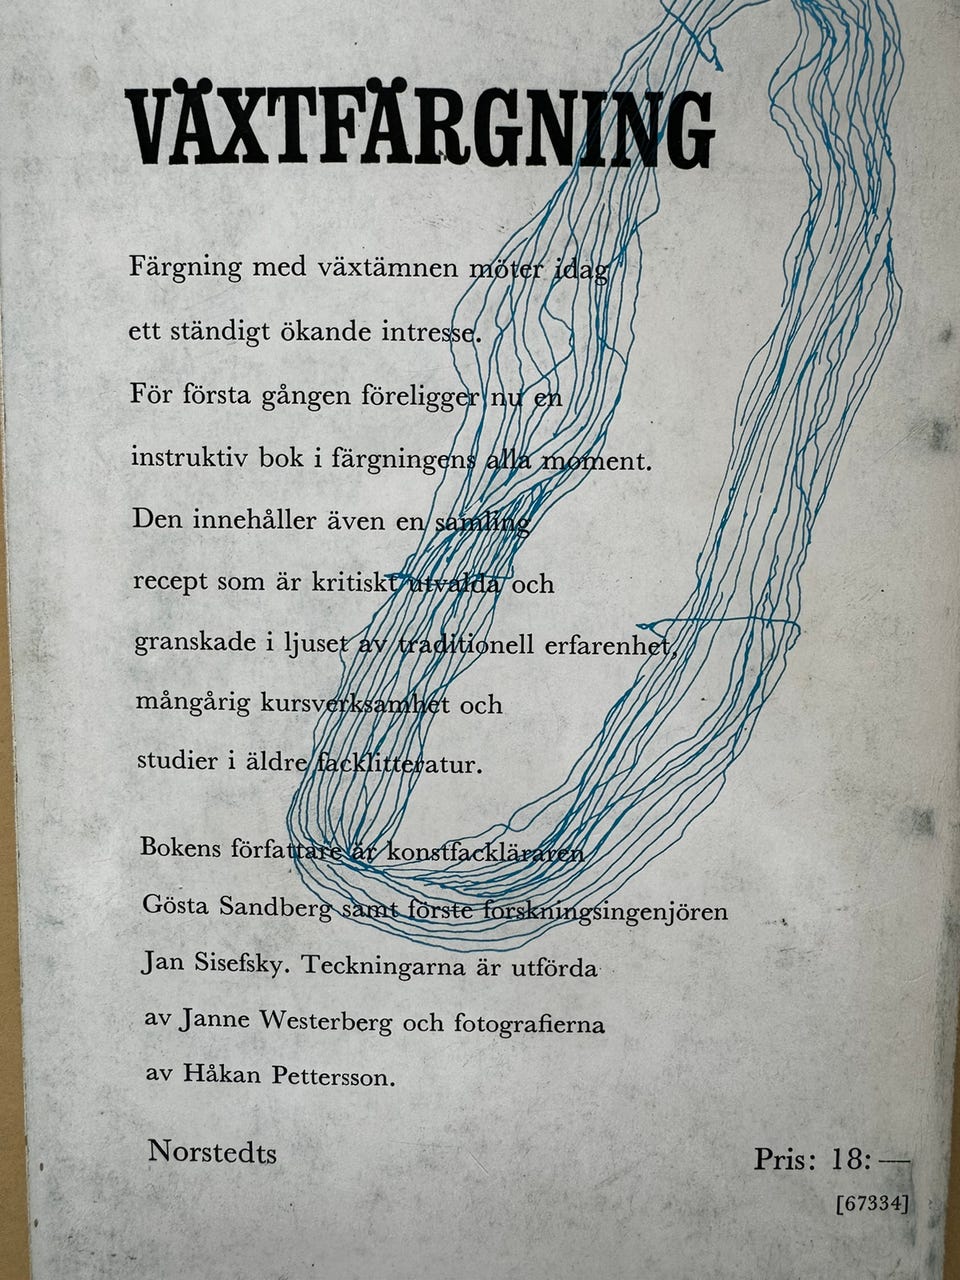 VÄXTFÄRGNING
Färgning med växtämnen möter idag
ett ständigt ökande intresse.
För första gången föreligger nu en
instruktiv bok i färgningens alla moment.
Den innehåller även en samling
recept som är kritiskt utvalda och
granskade i ljuset av traditionell erfarenhet,
mångårig kursverksamhet och
studier i äldre facklitteratur.
Bokens författare är konstfackläraren
Gösta Sandberg samt förste forskningsingenjören
Jan Sisefsky. Teckningarna är utförda
av Janne Westerberg och fotografierna
av Håkan Pettersson.
Norstedts
Pris: 18:—
[67334]